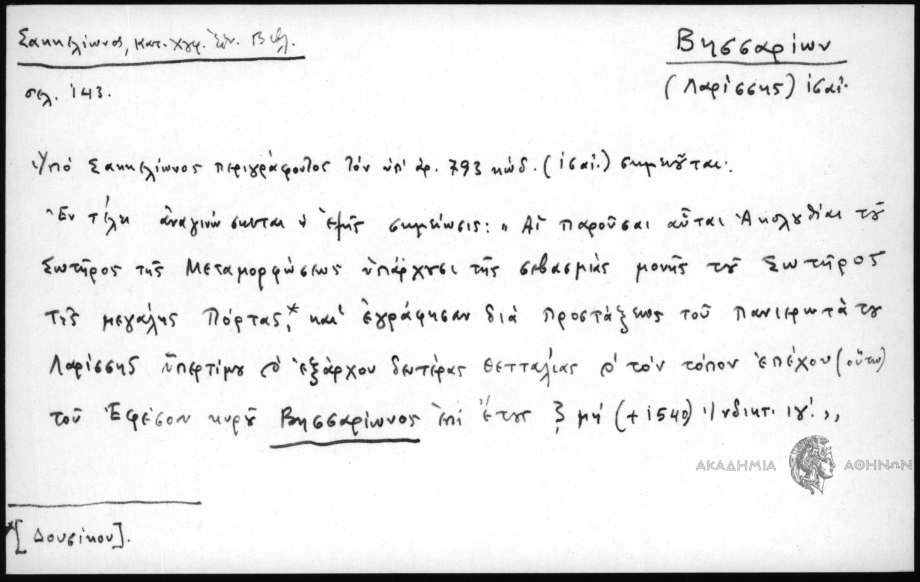 Σακκελίωνος, Κατ. Χγφ. Ἐθν. Βιβλ.
σελ. 143.
Βησσαρίων
(Λαρίσσης) ις΄ αἰ.
Ὑπὸ Σακκελίωνος περιγράφοντος τὸν ὑπ' ἀρ. 793 κώδ. (ις΄ αἰ.) σημειοῦται.
Ἐν τέλει ἀναγινώσκεται ἡ ἑξῆς σημείωσις: „Αἱ παροῦσαι αὗται Ἀκολυθίαι τοῦ
Σωτῆρος τῆς Μεταμορφώσεως ὑπάρχυσι τῆς σεβασμίας μονῆς τοῦ Σωτῆρος
τῆς μεγάλης Πόρτας,* καὶ ἐγράφησαν διὰ προστάξεως τοῦ πανιερωτάτυ
Λαρίσσης ὑπερτίμυ ϗ ἐξάρχου δευτέρας Θετταλίας ϗ τὸν τόπον ἐπέχον (οὕτω)
τοῦ Ἐφέσου κυροῦ Βησσαρίωνος ἐπὶ ἔτυς ζμή (+1540) Ἰνδικτ. ιγ΄.„
ΑΚΑΔΗΜΙΑ ΑΘΗΝΩΝ
*[Δουσίκου].